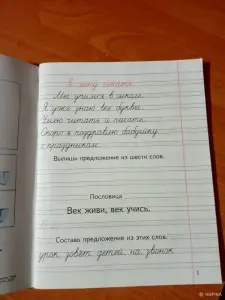 Я могу писать.
Мы учимся в школе.
Я уже знаю все буквы.
Умею читать и писать.
Скоро я поздравлю бабушку
с праздником.
Выпиши предложение из шести слов.
Пословица
Век живи, век учись.
Составь предложение из этих слов.
урок, зовёт, детей, на, звонок
1